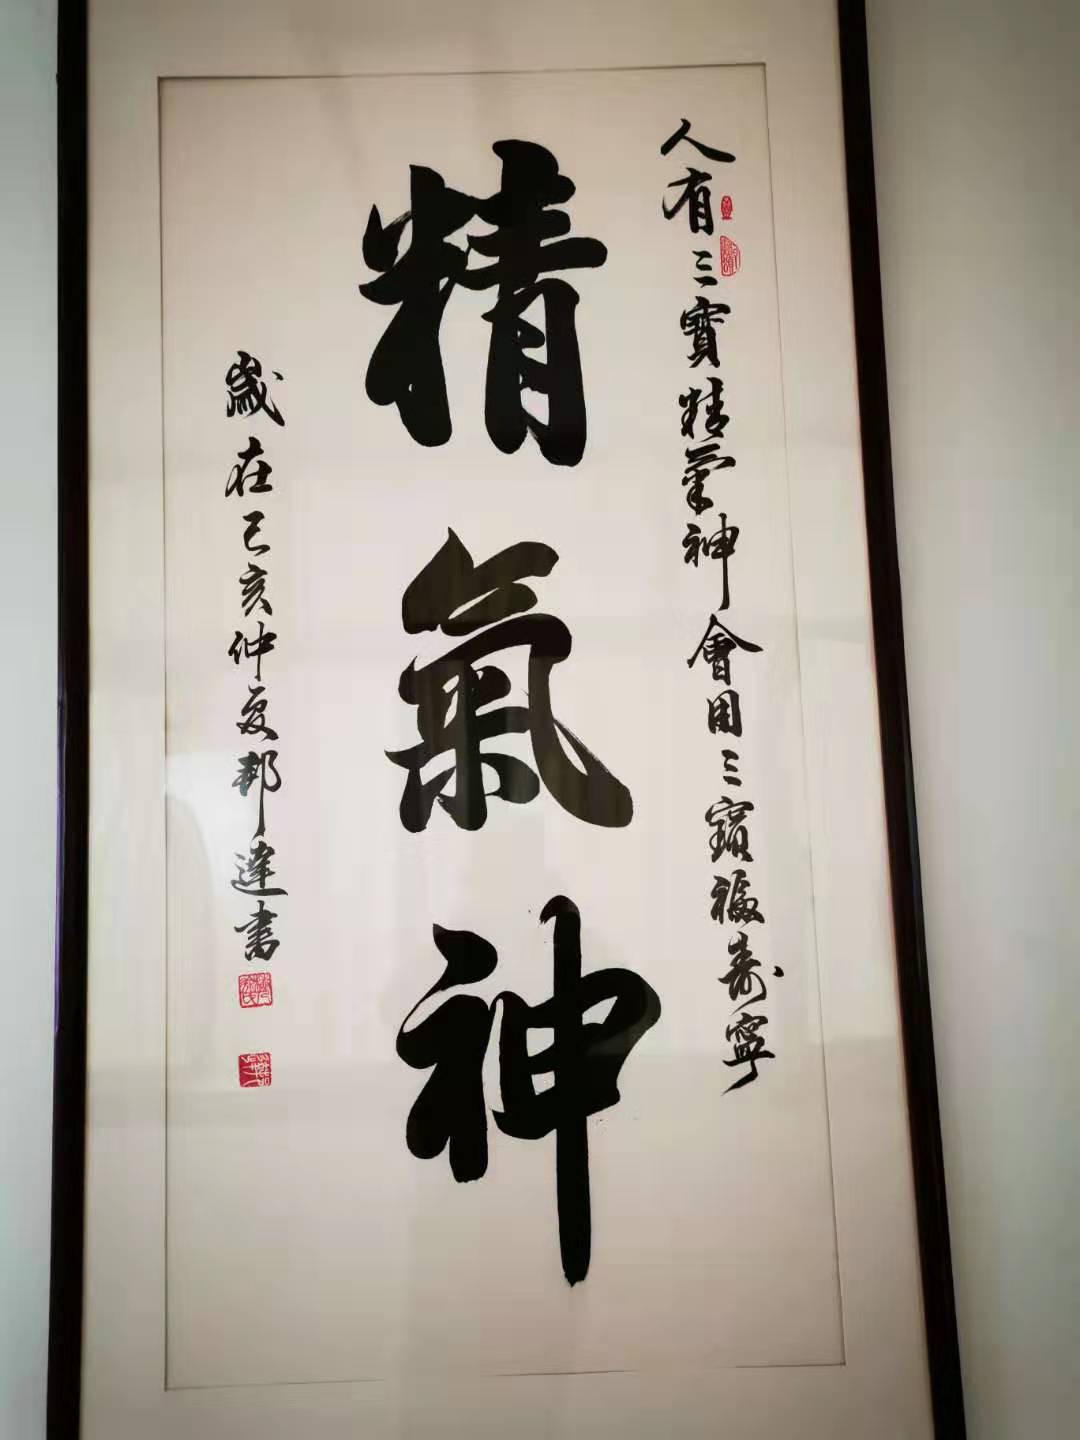 人有三寶精氣神會用三寶福壽寧
精氣神
歲在己亥仲夏邦達書